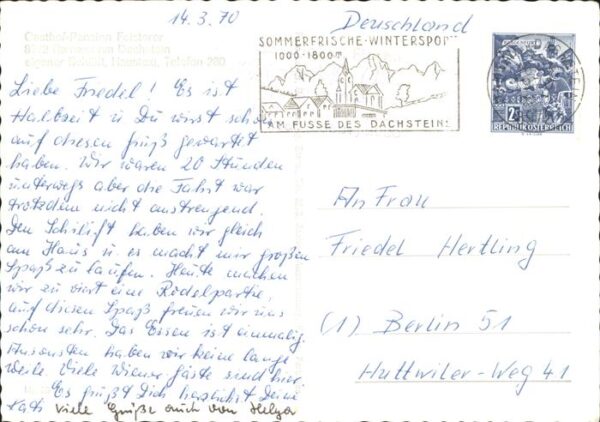 14.3.70
Deuschland
Gasthof-Pension Feisterer
eigener Schilift, Telefon 280
SOMMERFRISCHE-WINTERSPORT
1000-1800 m
AM FUSSE DES DACHSTEINS
2 S
REPUBLIK ÖSTERREICH
Liebe Friedel! Es ist
Halbzeit u Du wirst schon
auf diesen Gruß gewartet
haben. Wir waren 20 Stunden
unterwegs aber die Fahrt war
trotzdem nicht anstrengend.
Den Schilift haben wir gleich
am Haus u. es macht mir großen
Spaß zu laufen. Heute machen
wir zu viert eine Rodelpartie,
auf diesen Spaß freuen wir uns
schon sehr. Das Essen ist einmalig.
Ansonsten haben wir keine lange
weile viele Wiener gäste sind hier.
Es grüßt Dich herzlichst Deine
Kath viele Grüße auch von Helga
An Frau
Friedel Hertling
(1) Berlin 51
Huttwiler-Weg 41